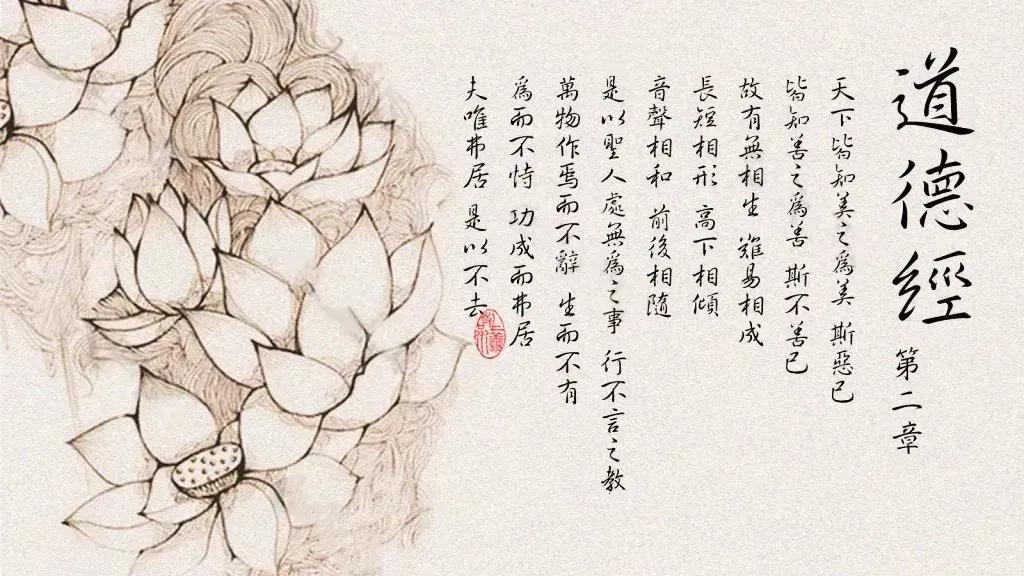 道德經 第二章
天下皆知美之為美 斯惡已
皆知善之為善 斯不善已
故有無相生 難易相成
長短相形 高下相傾
音聲相和 前後相隨
是以聖人處無為之事 行不言之教
萬物作焉而不辭 生而不有
為而不恃 功成而弗居
夫唯弗居 是以不去